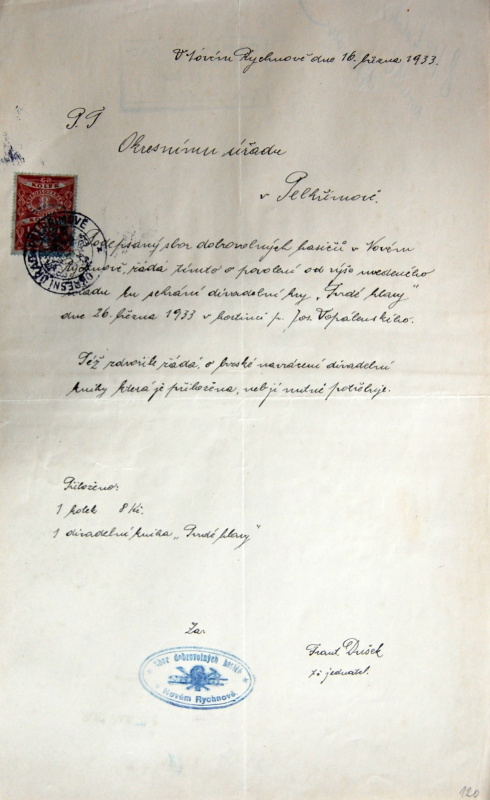 V Novém Rychnově dne 16. března 1933.
P. T
Okresnímu úřadu
v Pelhřimově.
KOLEK
8
Podepsaný sbor dobrovolných hasičů v Novém
Rychnově, žádá tímto o povolení od výše uvedeného
úřadu ku sehrání divadelní hry „Tvrdé hlavy"
dne 26. března 1933 v hostinci p. Jos. Vopálenského.
Též zdvořile žádá, o brzské navrácení divadelní
knihy která je přiložena, neb jí nutně potřebuje.
Přiloženo:
1 kolek 8 Kč.
1 divadelní kniha „Tvrdé hlavy"
Za:
Sbor dobrovolných hasičů
Novém Rychnově
Frant.
jednatel.
120